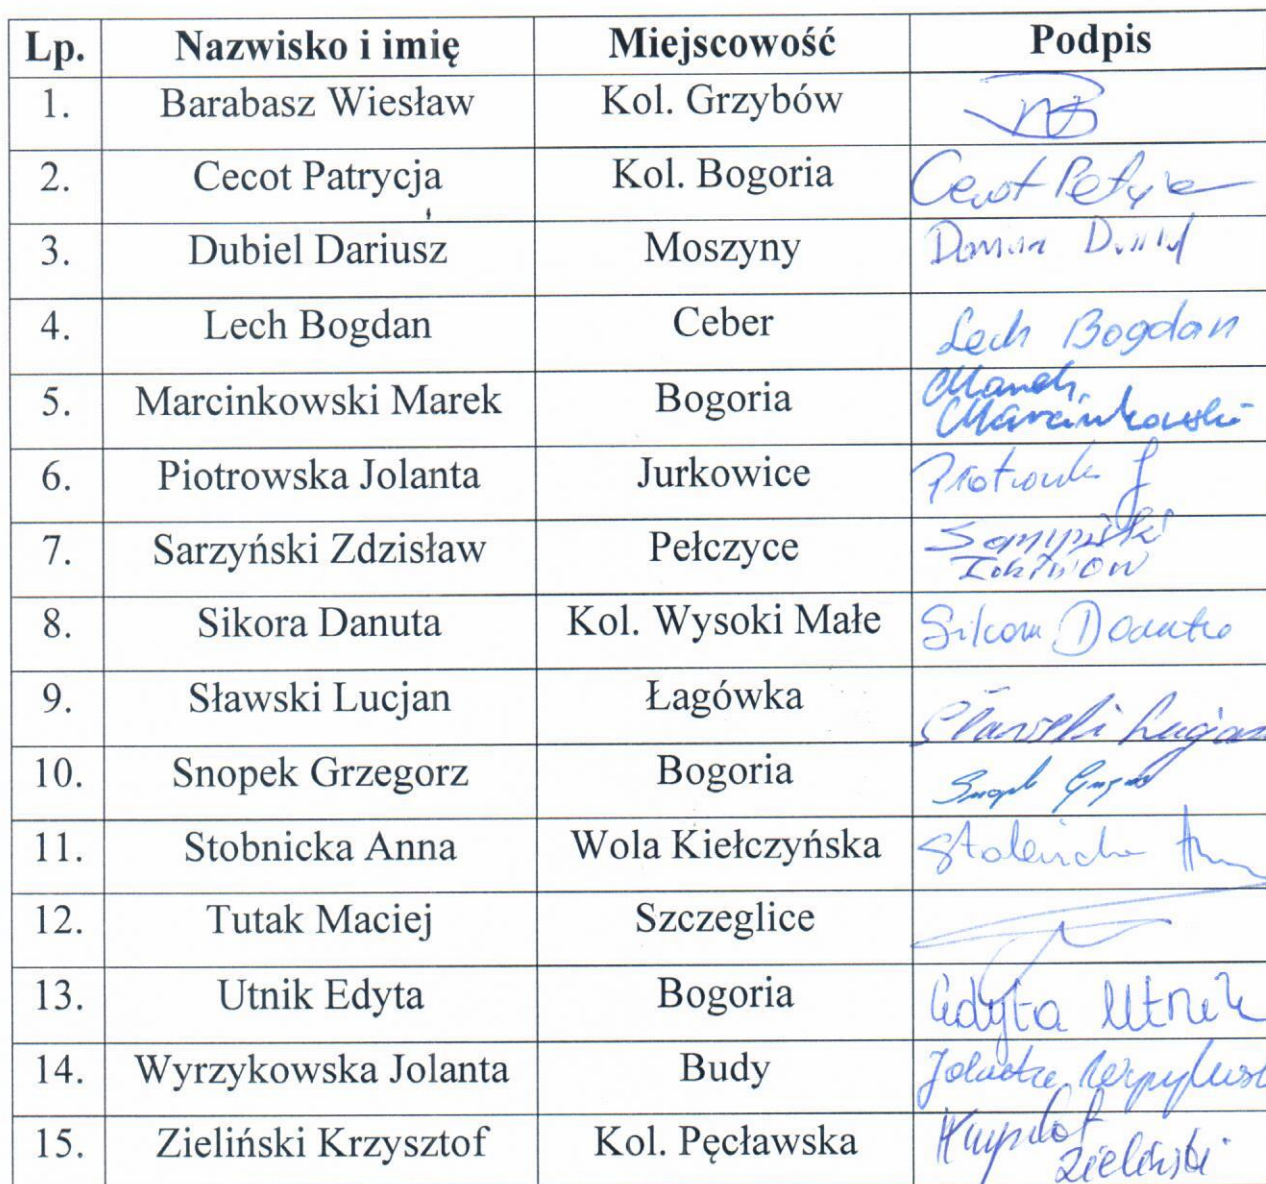 Lp. Nazwisko i imię Miejscowość Podpis
1. Barabasz Wiesław Kol. Grzybów
2. Cecot Patrycja Kol. Bogoria Cecot
3. Dubiel Dariusz Moszyny
4. Lech Bogdan Ceber Lech Bogdan
5. Marcinkowski Marek Bogoria Marek
Marcinkowski
6. Piotrowska Jolanta Jurkowice J
7. Sarzyński Zdzisław Pełczyce
8. Sikora Danuta Kol. Wysoki Małe Sikora Danuta
9. Sławski Lucjan Łagówka Sławski Lucjan
10. Snopek Grzegorz Bogoria
11. Stobnicka Anna Wola Kiełczyńska
12. Tutak Maciej Szczeglice
13. Utnik Edyta Bogoria Edyta Utnik
14. Wyrzykowska Jolanta Budy Jolanta
15. Zieliński Krzysztof Kol. Pęcławska Krzysztof
Zieliński